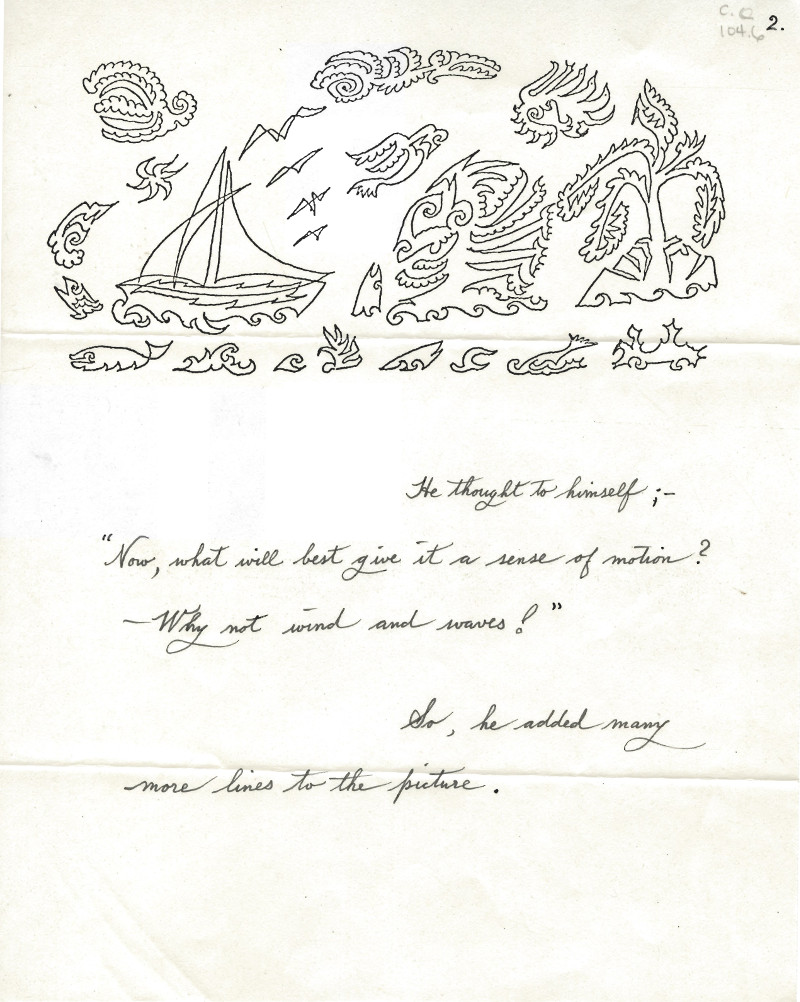 2.
He thought to himself ;—
"Now, what will best give it a sense of motion ?
— Why not wind and waves ! "
So, he added many
more lines to the picture .